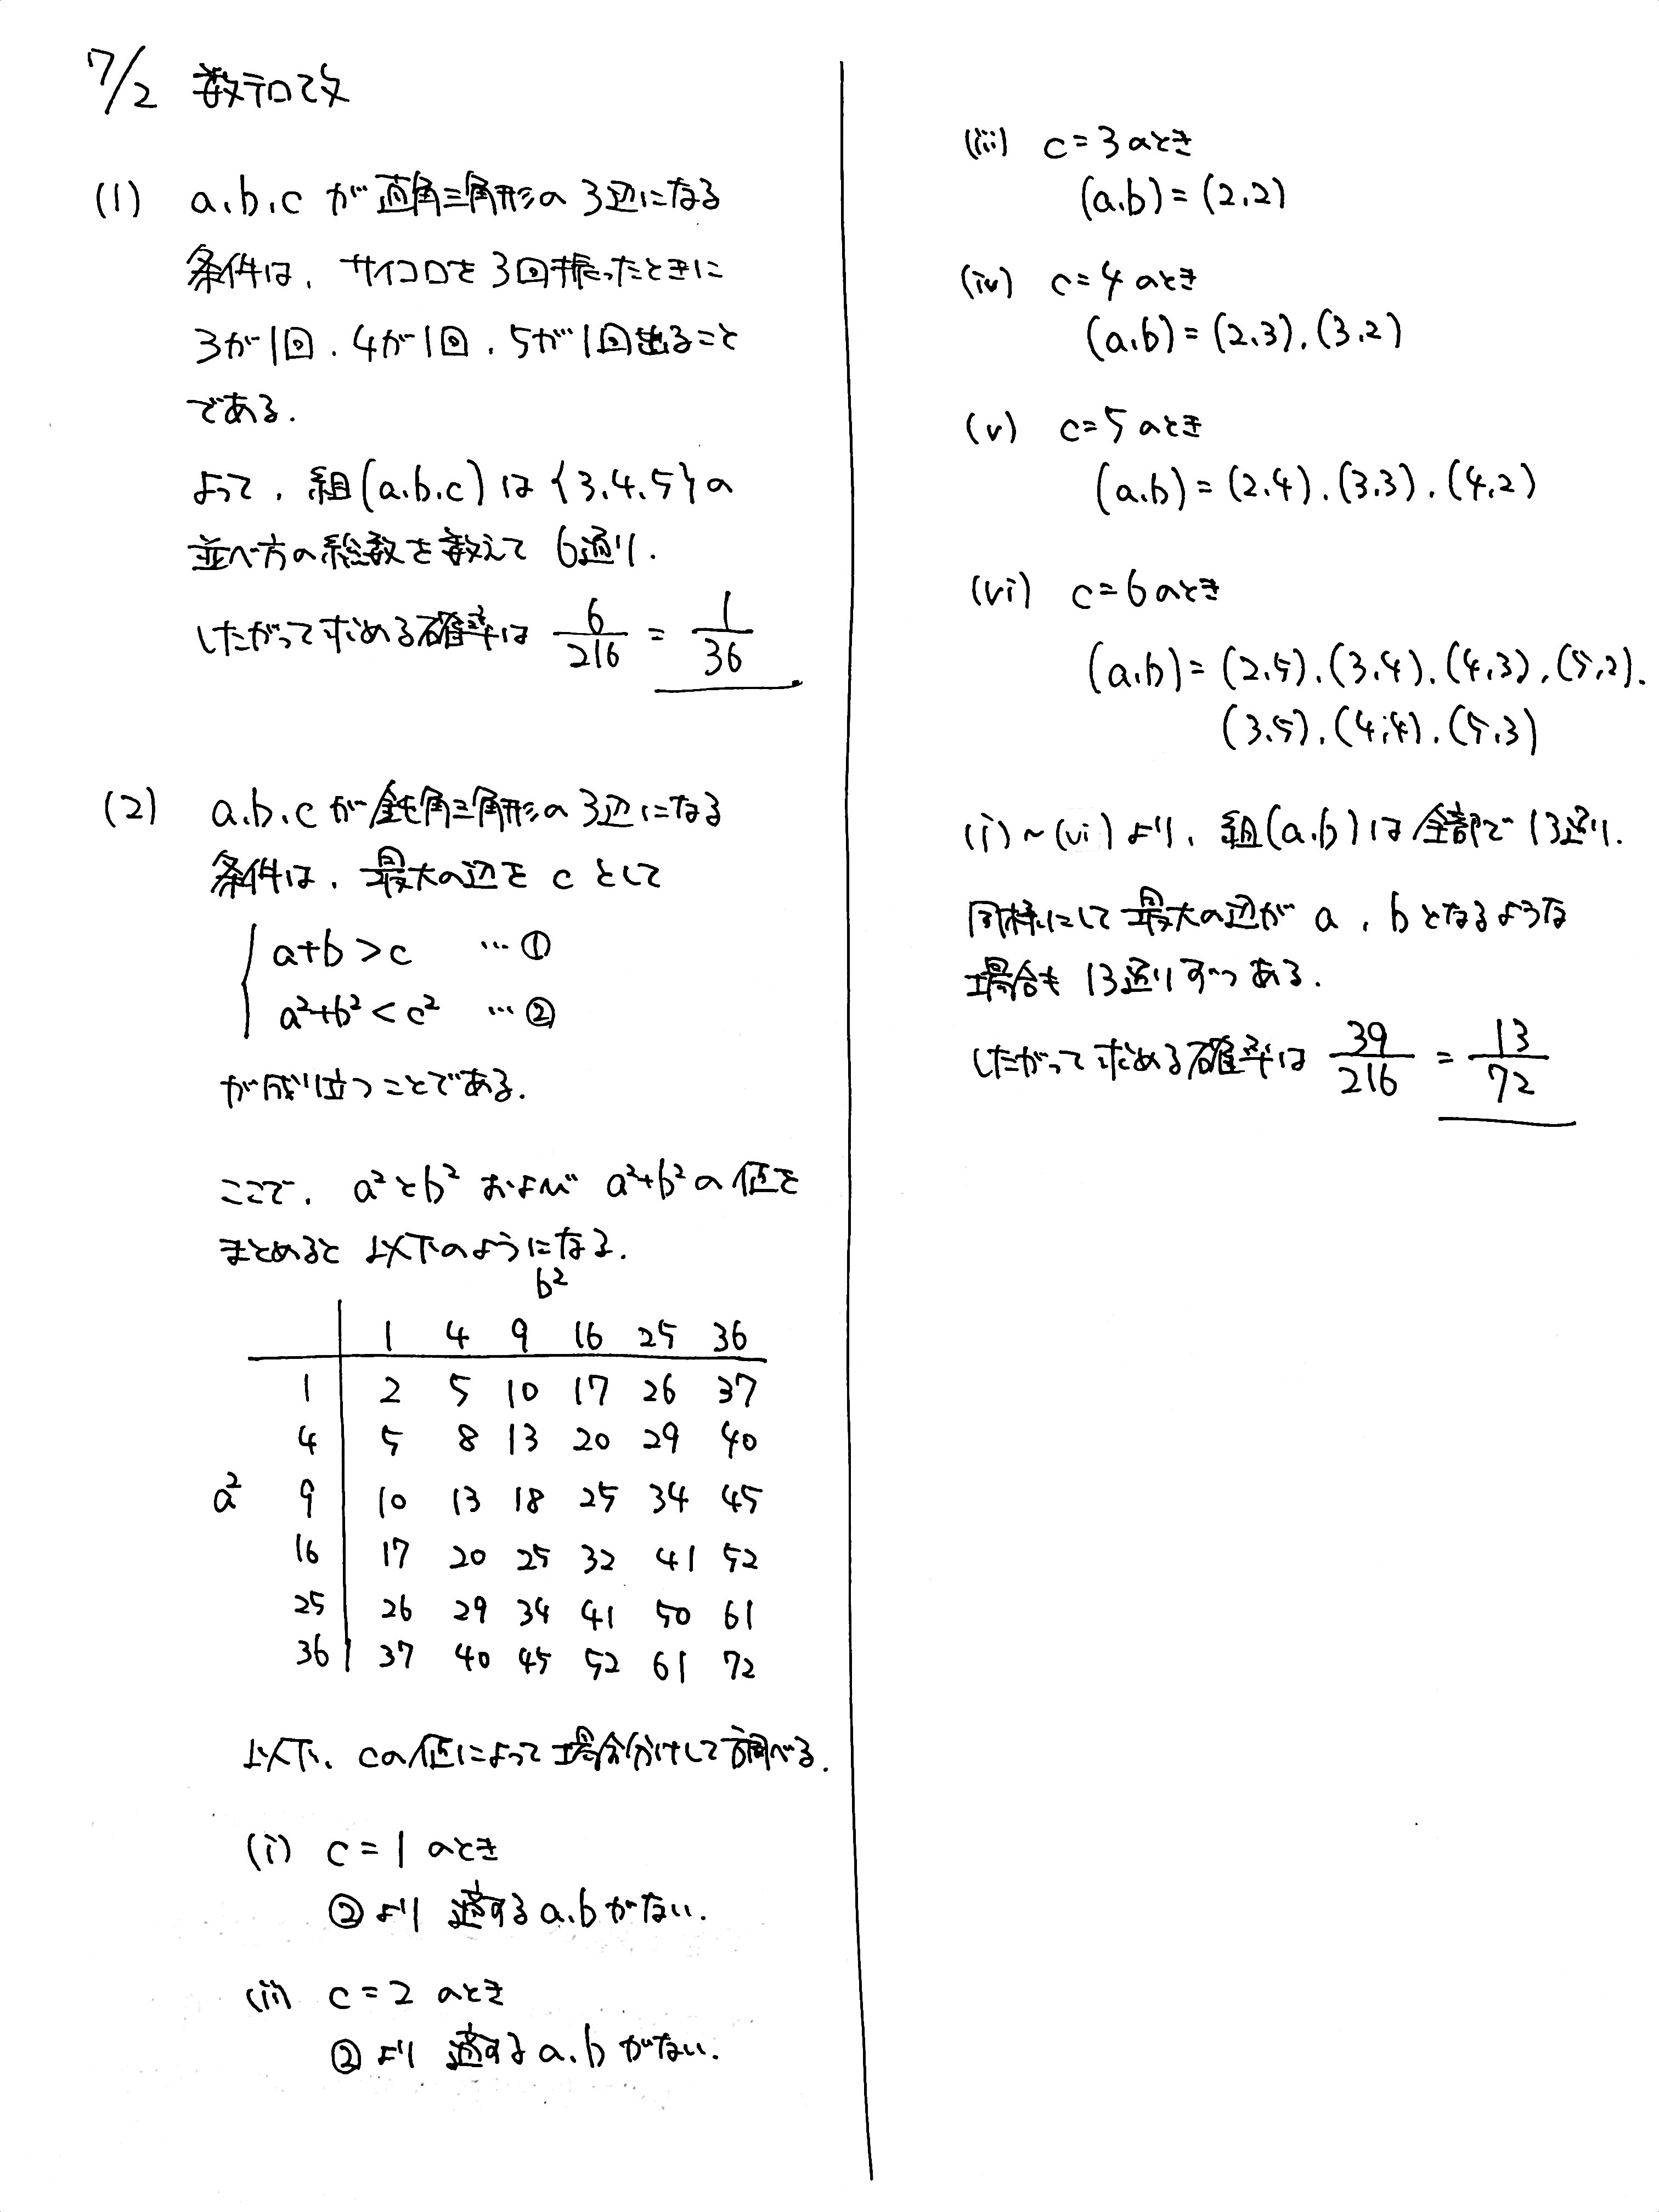 7/2 数テロ改
(1) a,b,c が直角三角形の3辺になる
条件は、サイコロを3回振ったときに
3が1回、4が1回、5が1回出ること
である.
よって、組(a,b,c)は{3,4,5}の
並べ方の総数を数えて 6通り.
したがって求める確率は 6/216 = 1/36
(2) a,b,c が鈍角三角形の3辺になる
条件は、最大の辺を c として
a+b>c …①
a²+b²<c² …②
が成り立つことである.
ここで、a²とb² および a²+b²の値を
まとめると 以下のようになる.
b²
1 4 9 16 25 36
1 2 5 10 17 26 37
4 5 8 13 20 29 40
a² 9 10 13 18 25 34 45
16 17 20 25 32 41 52
25 26 29 34 41 50 61
36 37 40 45 52 61 72
以下、cの値によって場合分けして調べる.
(i) c=1 のとき
②より 適する a,b がない.
(ii) c=2 のとき
②より 適する a,b がない.
(iii) c=3のとき
(a,b)=(2,2)
(iv) c=4 のとき
(a,b)=(2,3),(3,2)
(v) c=5 のとき
(a,b)=(2,4),(3,3),(4,2)
(vi) c=6のとき
(a,b)=(2,5),(3,4),(4,3),(5,2),
(3,5),(4,4),(5,3)
(i)~(vi)より、組(a,b)は全部で13通り.
同様にして最大の辺が a, b となるような
場合も 13通りずつある.
したがって求める確率は 39/216 = 13/72